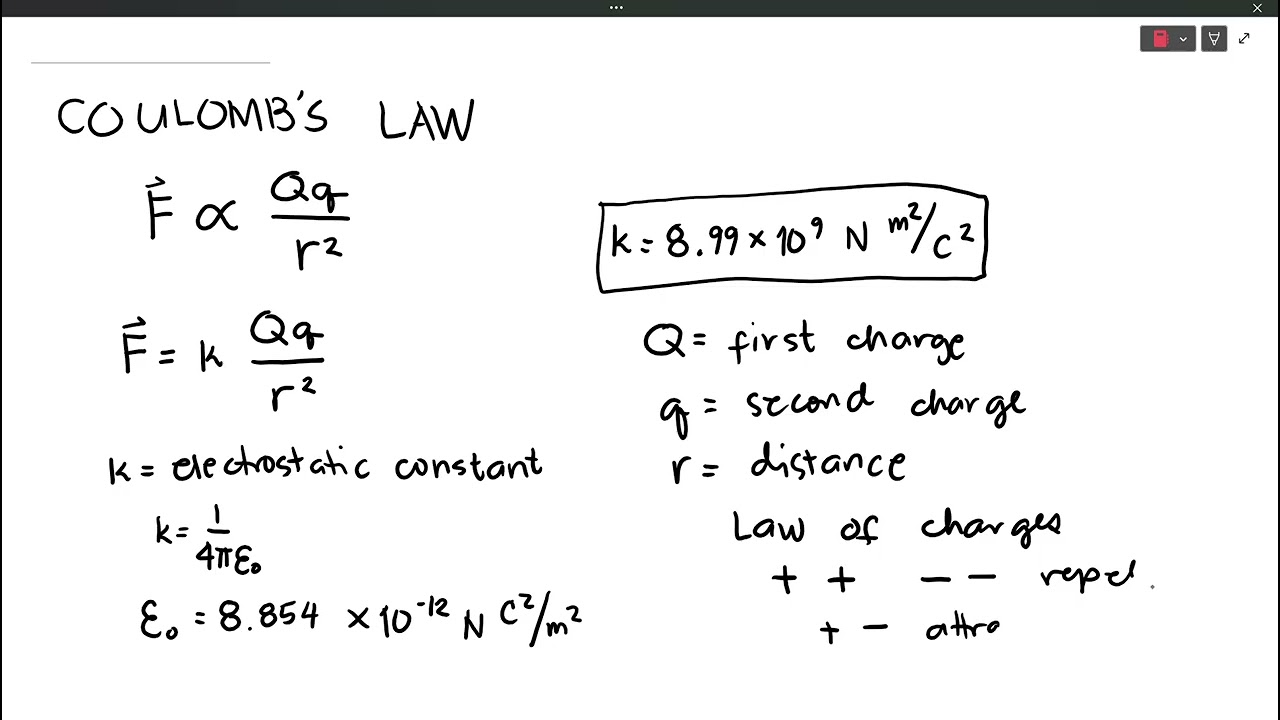 COULOMB'S LAW
F⃗ ∝ Qq/r²
F⃗ = k Qq/r²
k = electrostatic constant
k = 1/4πε₀
ε₀ = 8.854 ×10⁻¹² N C²/m²
k = 8.99 × 10⁹ N m²/C²
Q = first charge
q = second charge
r = distance
Law of charges
+ + − − repel
+ − attra